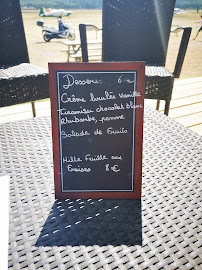 Dessert 6 €
Crème brulée vanille
Tiramisu chocolat blanc
Rhubarbe, pomme
Salade de Fruits
Mille Feuille aux
Fraises 8 €